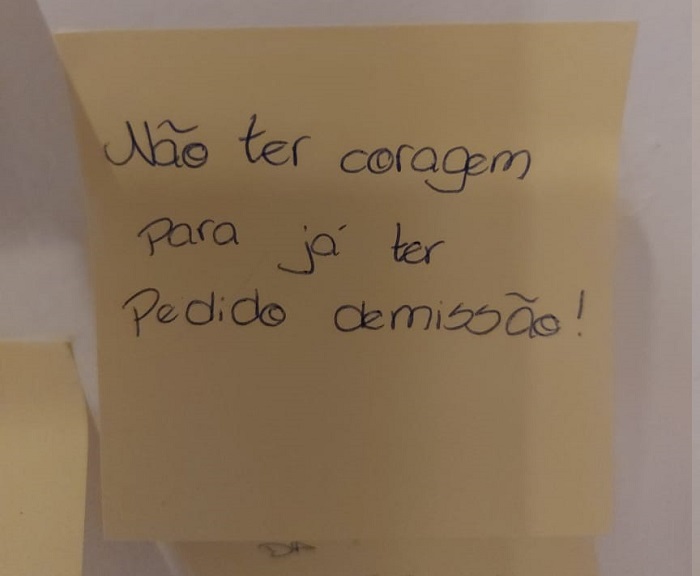 Não ter coragem
para já ter
Pedido demissão!